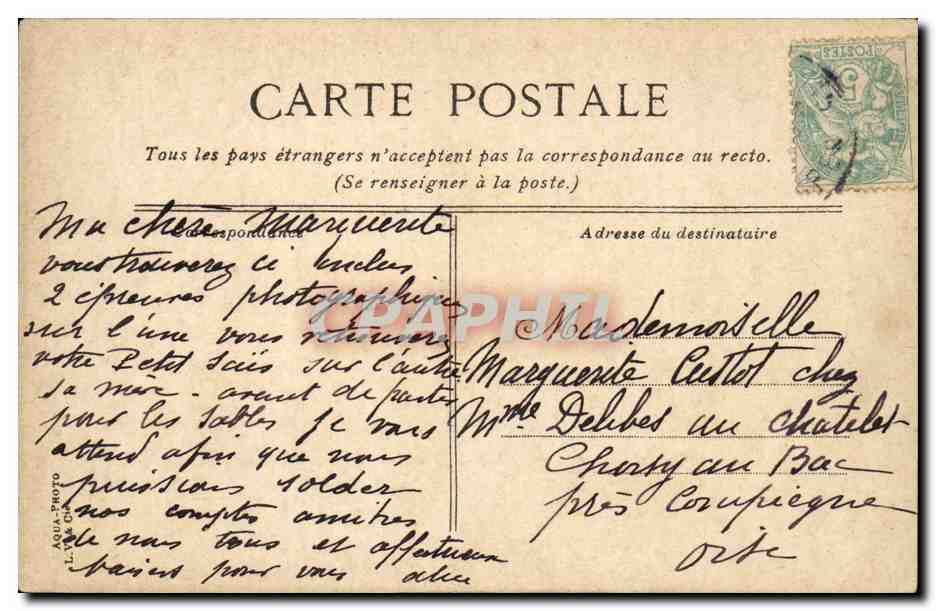 POSTES
5
CARTE POSTALE
Tous les pays étrangers n'acceptent pas la correspondance au recto.
(Se renseigner à la poste.)
Correspondance
Ma chere Marguerite
vous trouverez ci inclus
2 épreuves photographiques
sur l'une vous
votre Petit sur l'autre
sa mere - avant de partir
pour les Sables je vous
attend afin que nous
puissions solder
nos comptes amitiés
de nous tous et affectueux
baisers pour vous
Adresse du destinataire
Mademoiselle
Marguerite chez
Mme Delibes au chatelet
Choisy au Bac
près Compiègne
Oise
AQUA-PHOTO
L. V. & Cie
CPAPHIL